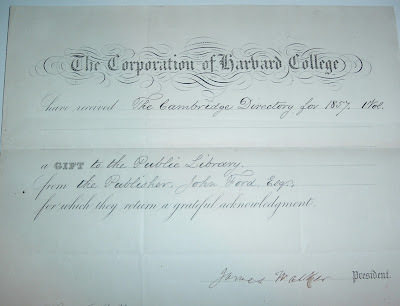 The Corporation of Harvard College
have received The Cambridge Directory for 1857, 1 Vol.
a GIFT to the Public Library.
from the Publisher, John Ford, Esq.,
for which they return a grateful acknowledgment.
James Walker President.